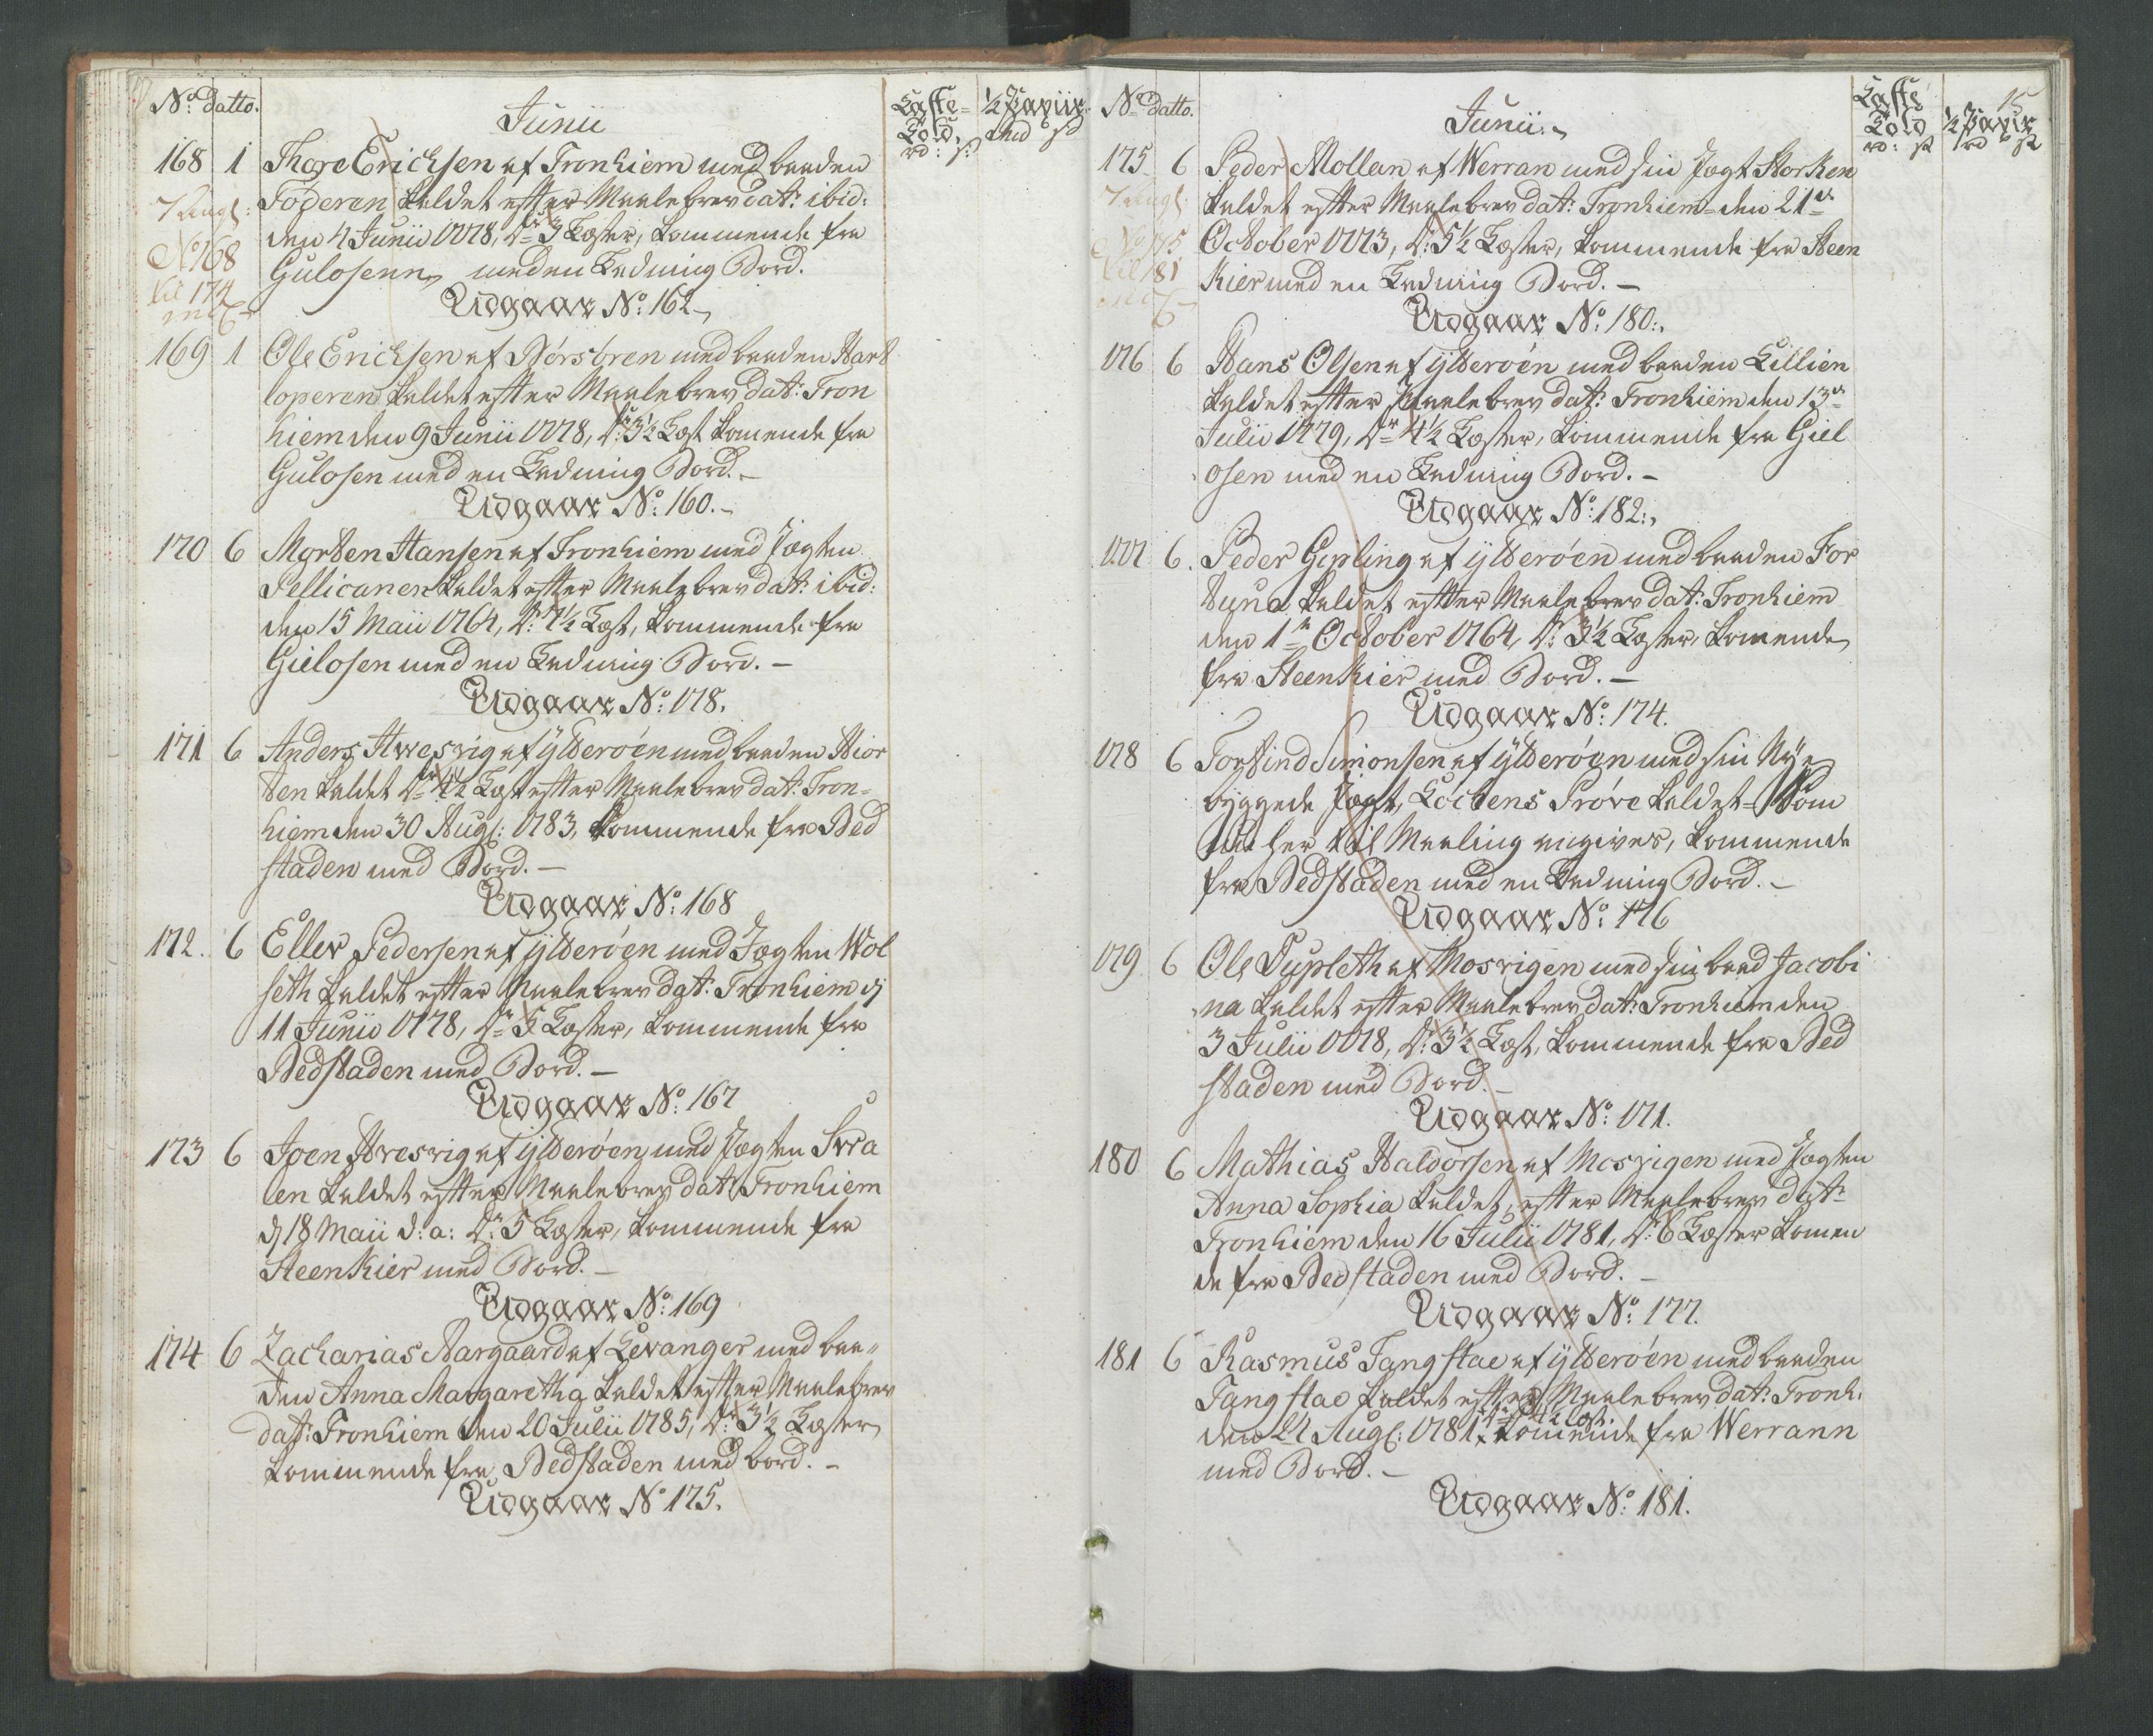 No datto.
Junii
Laste-
Told.
rd: s:
½ Papiir
rd s
168 1 Thore Erichsen af Tronhiem med baaden
Foderen kaldet efter Maalebrev dat: ibid:
den 4 Junii 1778, Dr: 3 Læster, kommende fra
Gulosenn med en Ladning Bord.
Udgaar No: 162
7 Augl:
No 168
til 174
incl
169 1 Ole Erichsen af Børsøren med baaden Hart
loperen kaldet efter Maalebrev dat: Tron
hiem den 9 Junii 1778, Dr: 3½ Læst komende fra
Gulosen med en Ladning Bord.
Udgaar No: 160.
170 6 Morten Hansen af Tronhiem med Jægten
Pellicanen kaldet efter Maalebrev dat: ibid:
den 15 Maii 1764, Dr: 7½ Læst, kommende fra
Gielosen med en Ladning Bord.
Udgaar No: 178.
171 6 Anders Hwesvig af Ytterøen med baaden Hior
ten kaldet Dr 4½ Læst efter Maalebrev dat: Tron-
hiem den 30 Augl: 1783, kommende fra Bed
staden med Bord.
Udgaar No: 168
172. 6 Eller Pedersen af Ytterøen med Jægten Wol
seth kaldet efter Maalebrev dat: Tronhiem d
11 Junii 1778, Dr 5 Læster, kommende fra
Bedstaden med Bord.
Udgaar No: 167
173 6 Joen Hresvig af Ytterøen med Jægten Sva
en kaldet efter Maalebrev dat: Tronhiem
d 18 Maii d: a: Dr: 5 Læster, kommende fra
Steenkier med Bord.
Udgaar No: 169
174 6 Zacharias Aargaard af Levanger med baa-
den Anna Margaretha kaldet efter Maalebrev
dat: Tronhiem den 20 Julii 1785, Dr: 3½ Læster
kommende fra Bedstaden med bord.
Udgaar No 175.
No datto.
Junii
Laste
Told
rd: s
15
½ Papir
rd s
175 6 Peder Mollan af Werran med sin Jagt Storken
kaldet efter Maalebrev dat: Tronhiem den 21de
October 1773, Dr: 5½ Læster, kommende fra Steen
kier med en Ladning Bord.
Udgaar No: 180.
7 Augl:
No 175
til 181
incl
176 6 Hans Olsen af Ytterøen med baaden Lillien
kaldet efter Maalebrev dat: Tronhiem den 13de
Julii 1779, Dr 4½ Læster, kommende fra Giel
osen med en Ladning Bord.
Udgaar No: 182.
177 6. Peder Gipling af Ytterøen med baaden For
tuna kaldet efter Maalebrev dat: Tronhiem
den 1te October 1764, Dr: 3½ Læster, komende
fra Steenkier med Bord.
Udgaar No: 174.
178 6 Torfind Simonsen af Ytterøen med sin Nye
byggede Jægt, Loctens Prøve kaldet som
nu her til Maaling angives, kommende
fra Bedstaden med en Ladning Bord.
Udgaar No: 176
179 6 Ole Dypleth af Mosvigen med sin baad Jacobi
na kaldet efter Maalebrev dat: Tronhiem den
3 Julii 1778, Dr: 3½ Læst, kommende fra Bed
staden med Bord.
Udgaar No: 171.
180 6 Mathias Haldorsen af Mosvigen med Jægten
Anna Sophia kaldet, efter Maalebrev dat:
Tronhiem den 16 Julii 1781, Dr: 6 Læster komen
de fra Bedstaden med Bord.
Udgaar No: 177.
181 6 Rasmus Tangstae af Ytterøen med baaden
Tangstae kaldet efter Maalebrev dat: Tronh:
den 21 Augl: 1781, Dr 4½ Læst. komende fra Werrann
med Bord.
Udgaar No: 181.